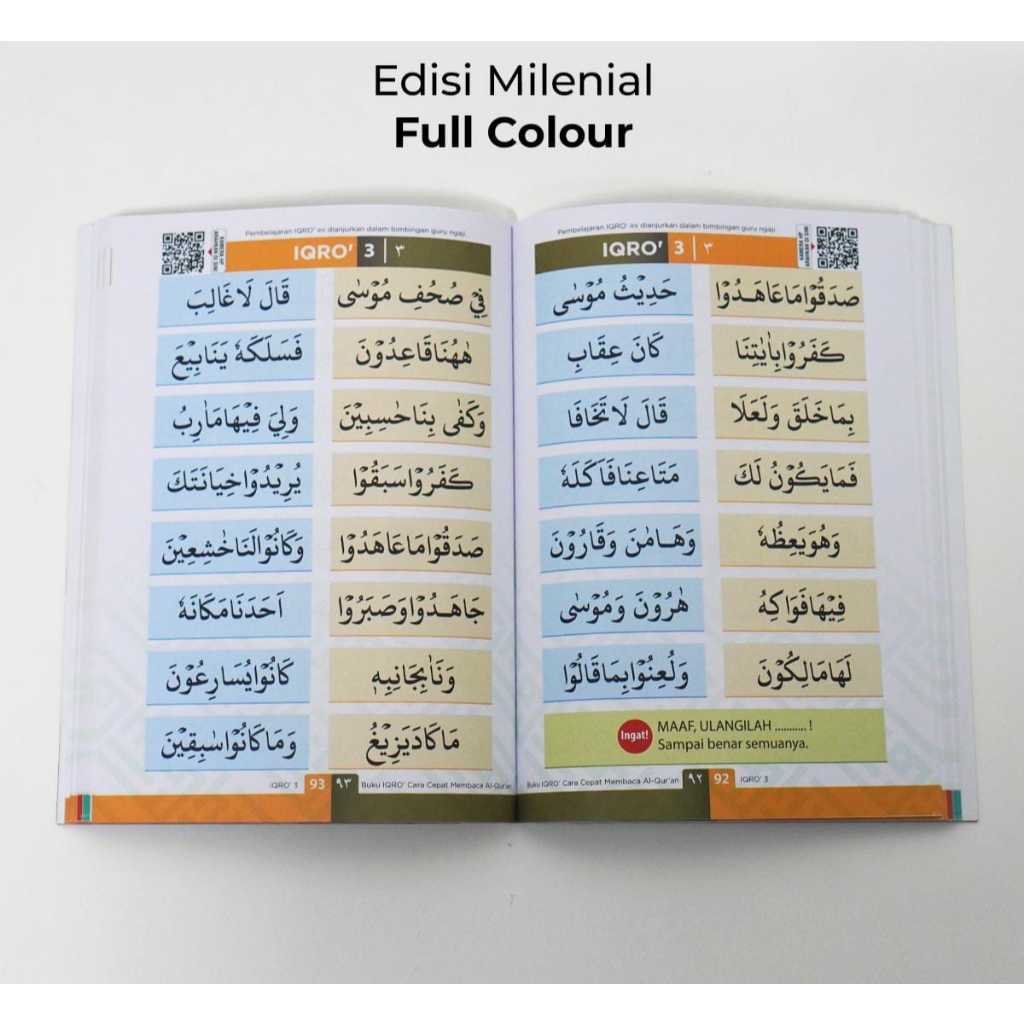 Edisi Milenial
Full Colour
Pembelajaran IQRO' ini dianjurkan dalam bimbingan guru ngaji.
IQRO' 3 | ٣
صَدَقُوْامَاعَاهَدُوْا
حَدِيْثُ مُوْسٰى
كَفَرُوْابِاٰيٰتِنَا
كَانَ عِقَابِ
بِمَاخَلَقَ وَلَعَلَا
قَالَ لَا تَخَافَا
فَمَايَكُوْنُ لَكَ
مَتَاعِنَافَاَكَلَهٗ
وَهُوَيَعِظُهٗ
وَهَامٰنَ وَقَارُوْنَ
فِيْهَافَوَاكِهُ
هٰرُوْنَ وَمُوْسٰى
لَهَامَالِكُوْنَ
وَلُعِنُوْابِمَاقَالُوْا
Ingat!
MAAF, ULANGILAH ........... !
Sampai benar semuanya.
Buku IQRO' Cara Cepat Membaca Al-Qur'an ٩٢ 92 IQRO' 3
Pembelajaran IQRO' ini dianjurkan dalam bimbingan guru ngaji.
IQRO' 3 | ٣
فِيْ صُحُفِ مُوْسٰى
قَالَ لَاغَالِبَ
هٰهُنَاقَاعِدُوْنَ
فَسَلَكَهٗ يَنَابِيْعَ
وَكَفٰى بِنَاحٰسِبِيْنَ
وَلِيَ فِيْهَامَاٰرِبُ
كَفَرُوْاسَبَقُوْا
يُرِيْدُوْاخِيَانَتَكَ
صَدَقُوْامَاعَاهَدُوْا
وَكَانُوْالَنَاخٰشِعِيْنَ
جَاهَدُوْاوَصَبَرُوْا
اَحَدَنَامَكَانَهٗ
وَنَاٰبِجَانِبِهٖ
كَانُوْايُسَارِعُوْنَ
مَاكَادَيَزِيْغُ
وَمَاكَانُوْاسٰبِقِيْنَ
IQRO' 3 93 ٩٣ Buku IQRO' Cara Cepat Membaca Al-Qur'an